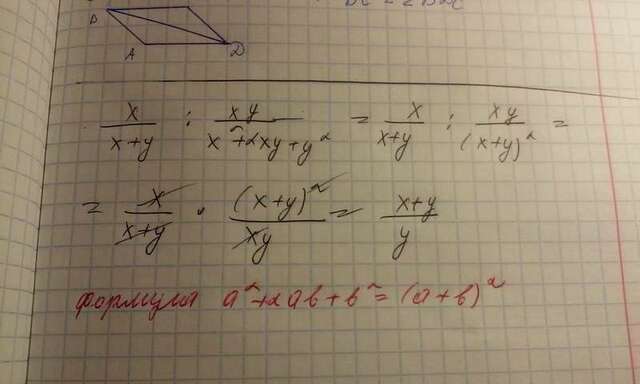 B
A D
x/(x+y) : xy/(x²+2xy+y²) = x/(x+y) : xy/(x+y)² =
= x/(x+y) · (x+y)²/xy = (x+y)/y
формула a²+2ab+b²=(a+b)²